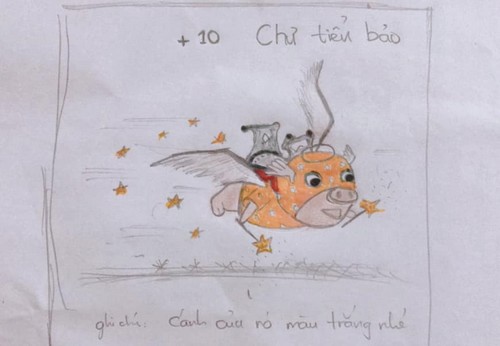 + 10 Chư tiểu bảo
ghi chú: Cánh của nó màu trắng nhé